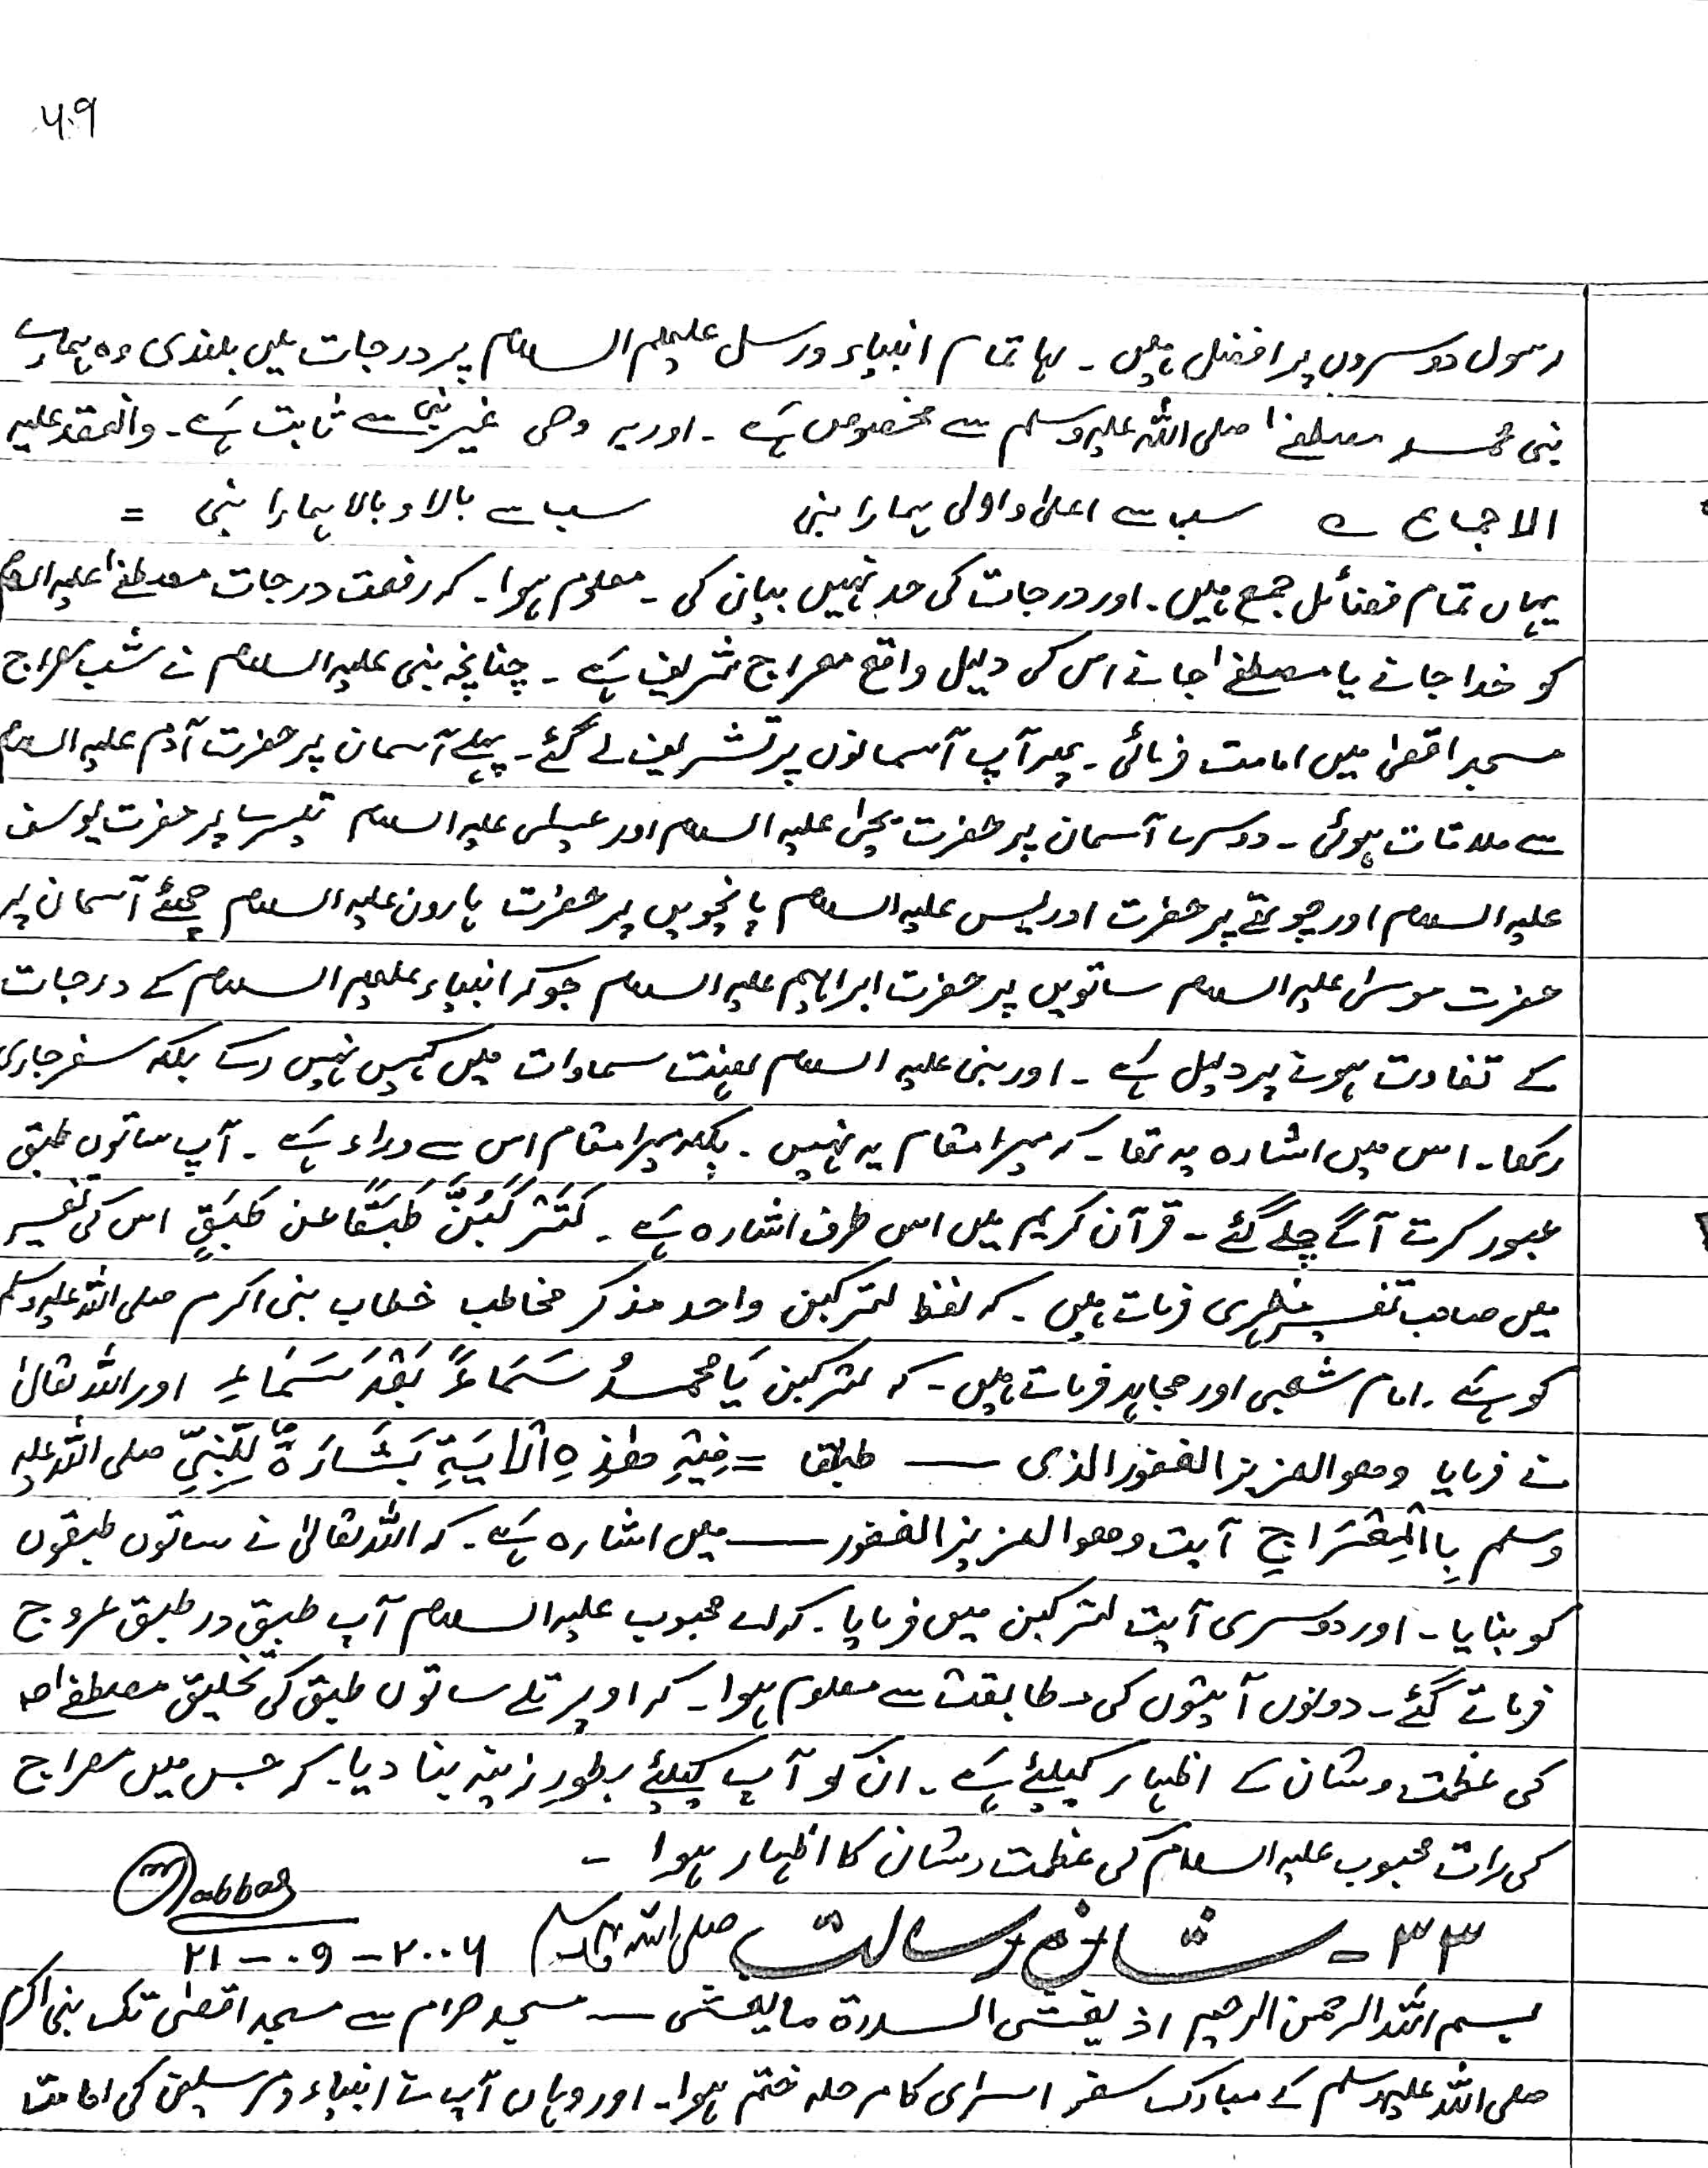 ۵۰۹
رسول دوسروں پر افضل ہیں ۔ لہا تمام انبیاء ورسل علیہم السلام پر درجات میں بلندی وہ ہمارے
نبی محمد مصطفےٰ صلی اللہ علیہ وسلم سے مخصوص ہے ۔ اور یہ وحی غیر نبی سے ثابت ہے ۔ وانعقد علیہ
الاجماع ے سب سے اعلیٰ و اولی ہمارا نبی سب سے بالا و بالا ہمارا نبی =
یہاں تمام فضائل جمع ہیں ۔ اور درجات کی حد نہیں بیان کی ۔ معلوم ہوا ۔ کہ رفعت درجات مصطفےٰ علیہ السلام
کو خدا جانے یا مصطفےٰ جانے اس کی دلیل واقع معراج شریف ہے ۔ چنانچہ نبی علیہ السلام نے شب معراج
مسجد اقصیٰ میں امامت فرمائی ۔ پھر آپ آسمانوں پر تشریف لے گئے ۔ پہلے آسمان پر حضرت آدم علیہ السلام
سے ملاقات ہوئی ۔ دوسرے آسمان پر حضرت یحیٰ علیہ السلام اور عیسٰی علیہ السلام تیسرے پر حضرت یوسف
علیہ السلام اور چوتھے پر حضرت ادریس علیہ السلام پانچویں پر حضرت ہارون علیہ السلام چھٹے آسمان پر
حضرت موسیٰ علیہ السلام ساتویں پر حضرت ابراہیم علیہ السلام جو کہ انبیاء علیہم السلام کے درجات
کے تفاوت ہونے پر دلیل ہے ۔ اور نبی علیہ السلام ہفت سماوات میں کہیں نہیں رکے بلکہ سفر جاری
رکھا ۔ اس میں اشارہ یہ تھا ۔ کہ میرا مقام یہ نہیں ۔ بلکہ میرا مقام اس سے وراء ہے ۔ آپ ساتوں طبق
عبور کرتے آگے چلے گئے ۔ قرآن کریم میں اس طرف اشارہ ہے ۔ لَتَرْكَبُنَّ طَبَقًا عَن طَبَقٍ اس کی تفسیر
میں صاحب تفسیر مظہری فرماتے ہیں ۔ کہ لفظ لترکبن واحد مذکر مخاطب خطاب نبی اکرم صلی اللہ علیہ وسلم
کو ہے ۔ امام شعبی اور مجاہد فرماتے ہیں ۔ کہ لترکبن یَا محمدُ سَمَاءً بَعْدَ سَمَاءٍ اور اللہ تعالیٰ
نے فرمایا وھو العزیز الغفور الذی — طباقا = فِیْہِ ھٰذِہِ الْاٰیَۃِ بَشَارَۃٌ لِلنَّبِیِّ صلی اللہ علیہ
وسلم بِاالْمِعْرَاجِ آیت وھوا لعزیز الغفور — میں اشارہ ہے ۔ کہ اللہ تعالیٰ نے ساتوں طبقوں
کو بنایا ۔ اور دوسری آیت لترکبن میں فرمایا ۔ کہ اے محبوب علیہ السلام آپ طبق در طبق عروج
فرماتے گئے ۔ دونوں آیتوں کی مطابقت سے معلوم ہوا ۔ کہ اوپر تلے ساتوں طبق کی تخلیق مصطفےٰ صہ
کی عظمت و شان کے اظہار کیلئے ہے ۔ ان کو آپ کیلئے بطورِ زینہ بنا دیا ۔ کہ جس میں معراج
کی رات محبوب علیہ السلام کی عظمت و شان کا اظہار ہوا ۔
abbas
۳۳ ۔ شانِ رسالت صلی اللہ علیہ وسلم ۲۱-۰۹-۲۰۰۶
بسم اللہ الرحمن الرحیم اذ یغشی السدرۃ ما یغشی — مسجد حرام سے مسجد اقصیٰ تک نبی اکرم
صلی اللہ علیہ وسلم کے مبارک سفر اسری کا مرحلہ ختم ہوا ۔ اور وہاں آپ نے انبیاء و مرسلین کی امامت